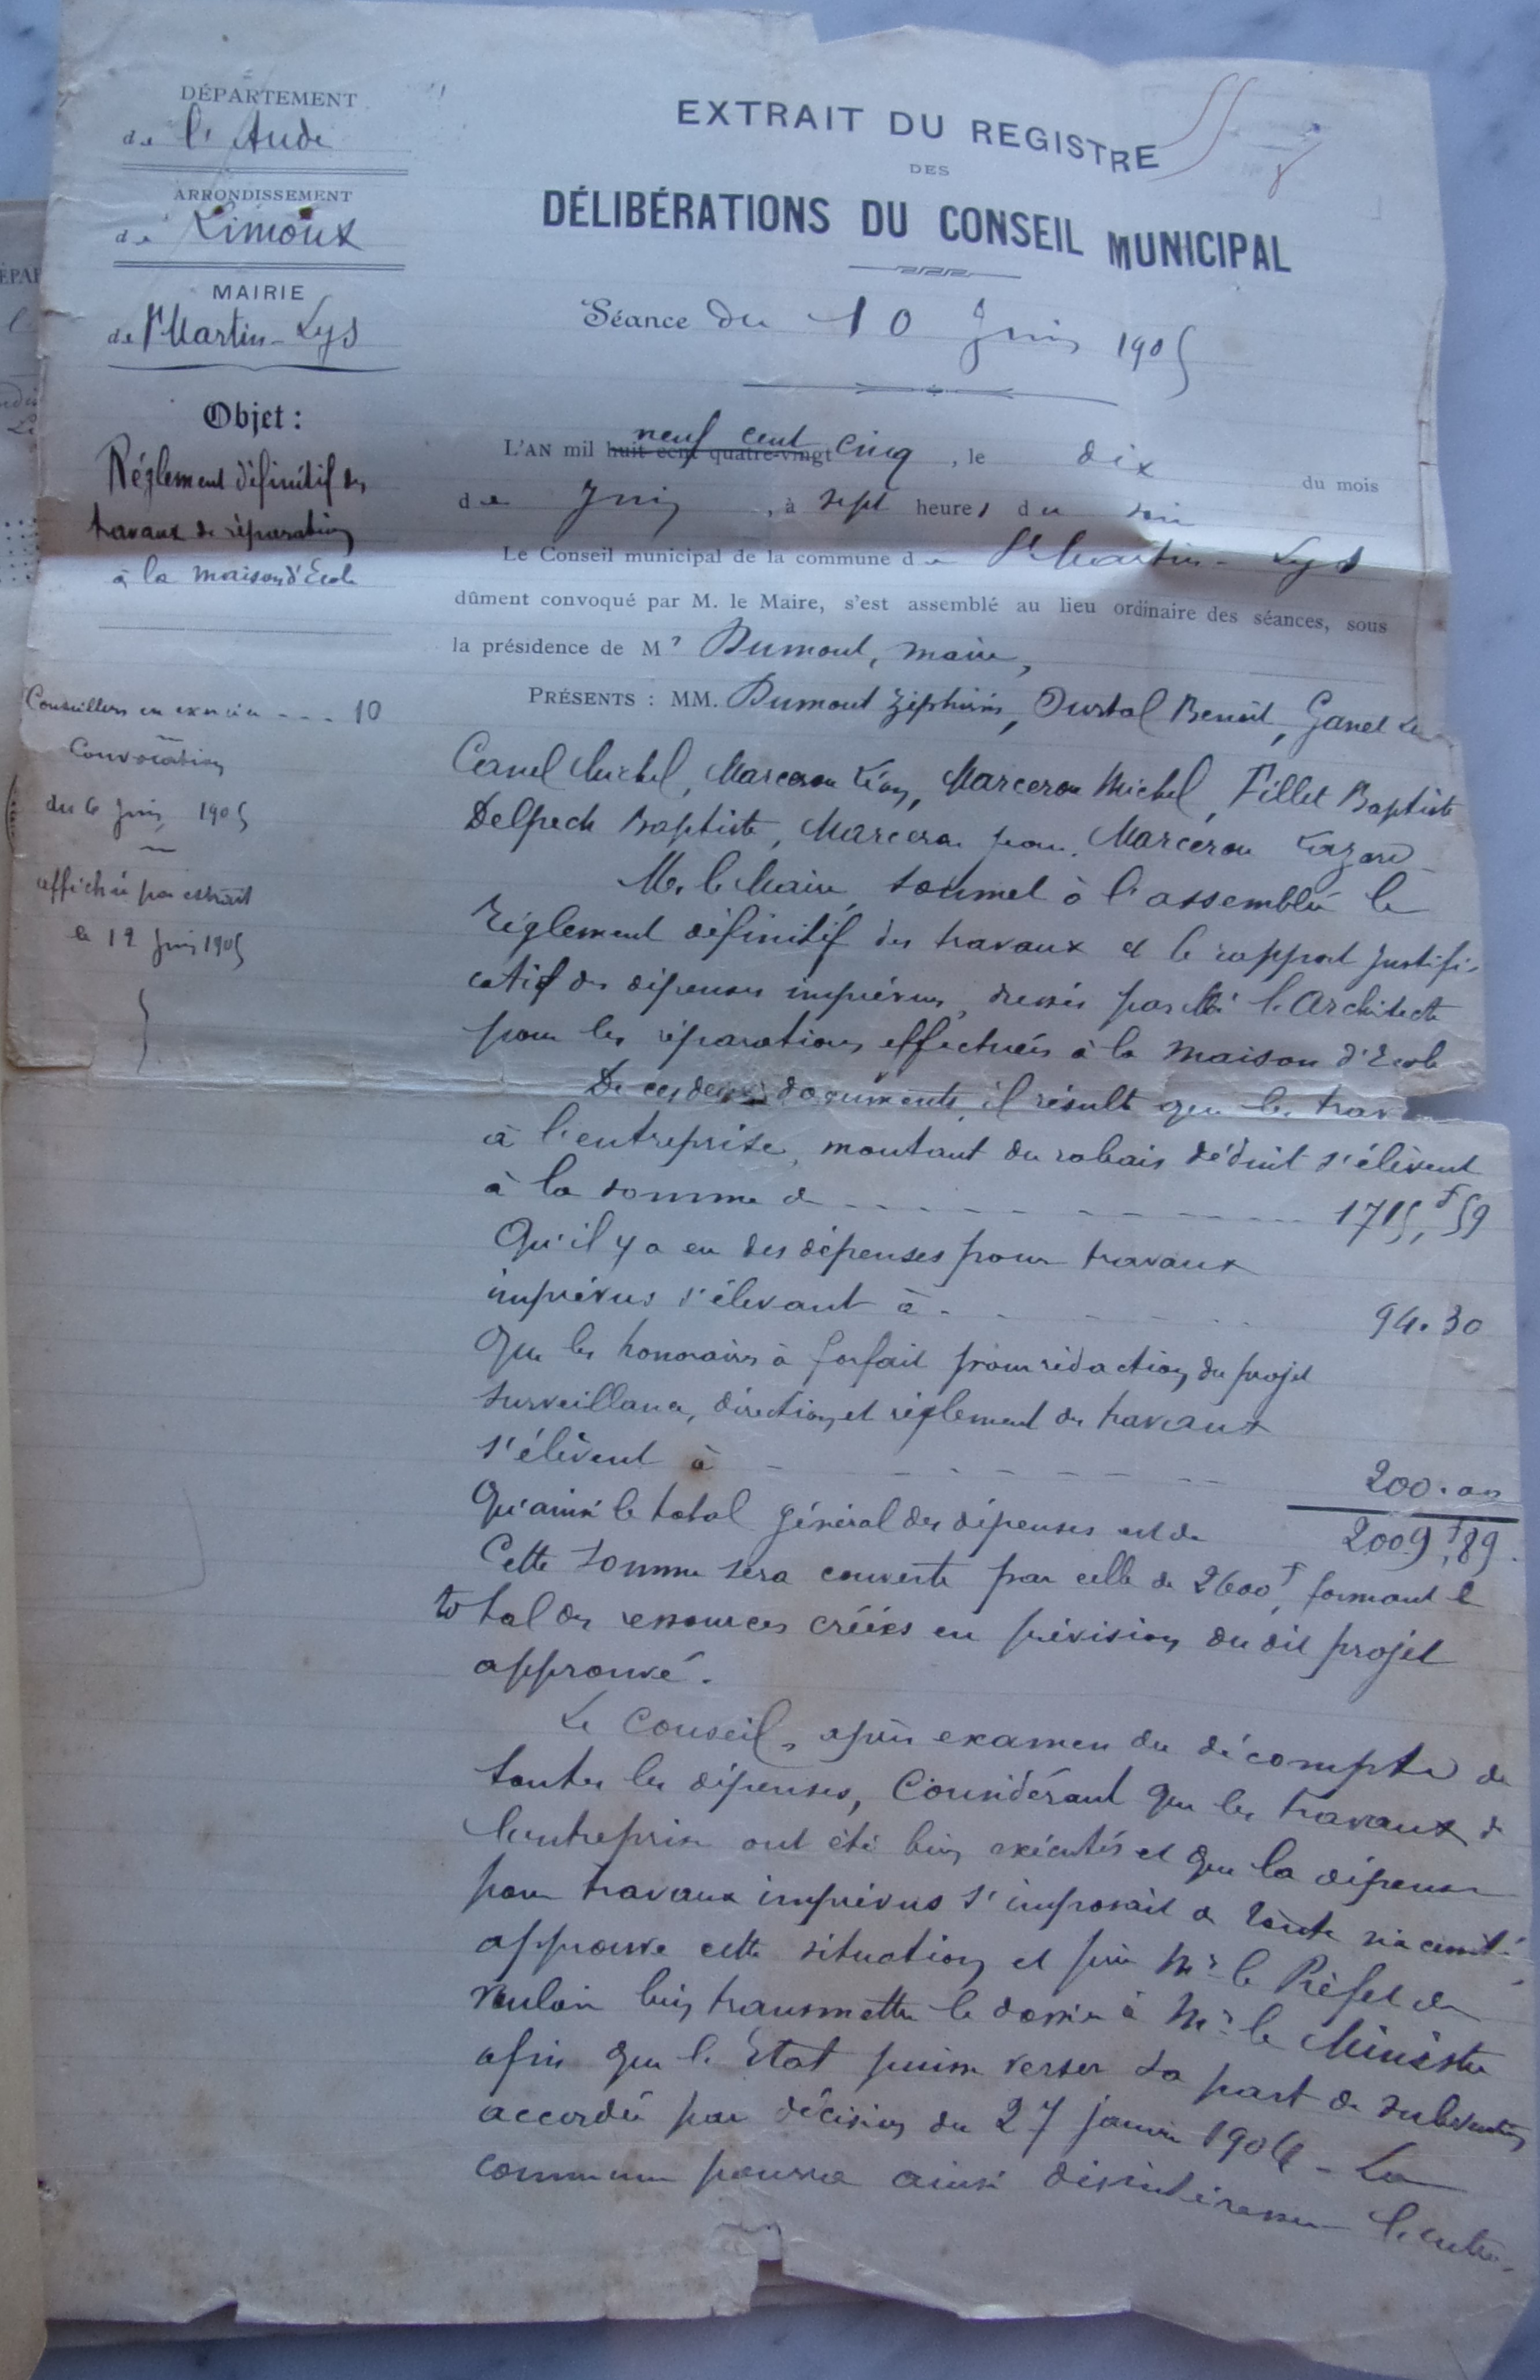 DÉPARTEMENT
de l'Aude
ARRONDISSEMENT
de Limoux
MAIRIE
de St Martin-Lys
Objet :
Réglement définitif des
travaux de réparation
à la maison d'Ecole
Conseillers en exercice - - - 10
Convocation
du 6 Juin 1905
affiché par extrait
le 12 Juin 1905
EXTRAIT DU REGISTRE
DES
DÉLIBÉRATIONS DU CONSEIL MUNICIPAL
Séance du 10 Juin 1905
neuf cent
L'AN mil huit cent quatre-vingt cinq, le dix du mois
de Juin, à sept heures du soir
Le Conseil municipal de la commune de St Martin-Lys
dûment convoqué par M. le Maire, s'est assemblé au lieu ordinaire des séances, sous
la présidence de Mr Dumont, maire,
PRÉSENTS : MM. Dumont Zéphirin, Oustal Benoit, Ganel
Canel Michel, Marceron Léon, Marceron Michel, Fillet Baptiste
Delpech Baptiste, Marceron Jean, Marceron Lazare
Mr le Maire soumet à l'assemblée le
réglement définitif des travaux et le rapport justifi-
catif des dépenses imprévues, dressés par Mr l'Architecte
pour les réparations effectuées à la maison d'Ecole
De ces deux documents, il résulte que les trav
à l'entreprise, montant du rabais déduit s'élèvent
à la somme de - - - - - - 1715,f59
Qu'il y a eu des dépenses pour travaux
imprévus s'élevant à - - - - 94.30
Que les honoraires à forfait pour rédaction du projet
surveillance, direction et réglement des travaux
s'élèvent à - - - - - - 200.00
Qu'ainsi le total général des dépenses est de 2009,f89.
Cette somme sera couverte par celle de 2600f, formant le
total des ressources créées en prévision du dit projet
approuvé.
Le Conseil, après examen du décompte de
toutes les dépenses, Considérant que les travaux de
l'entreprise ont été bien exécutés et que la dépense
pour travaux imprévus s'imposait de toute nécessité,
approuve cette situation et prie Mr le Préfet de
vouloir bien transmettre le dossier à Mr le Ministre
afin que l'Etat puisse verser sa part de subvention
accordée par décision du 27 janvier 1904 - La
commune pourra ainsi désintéresser l'entre-